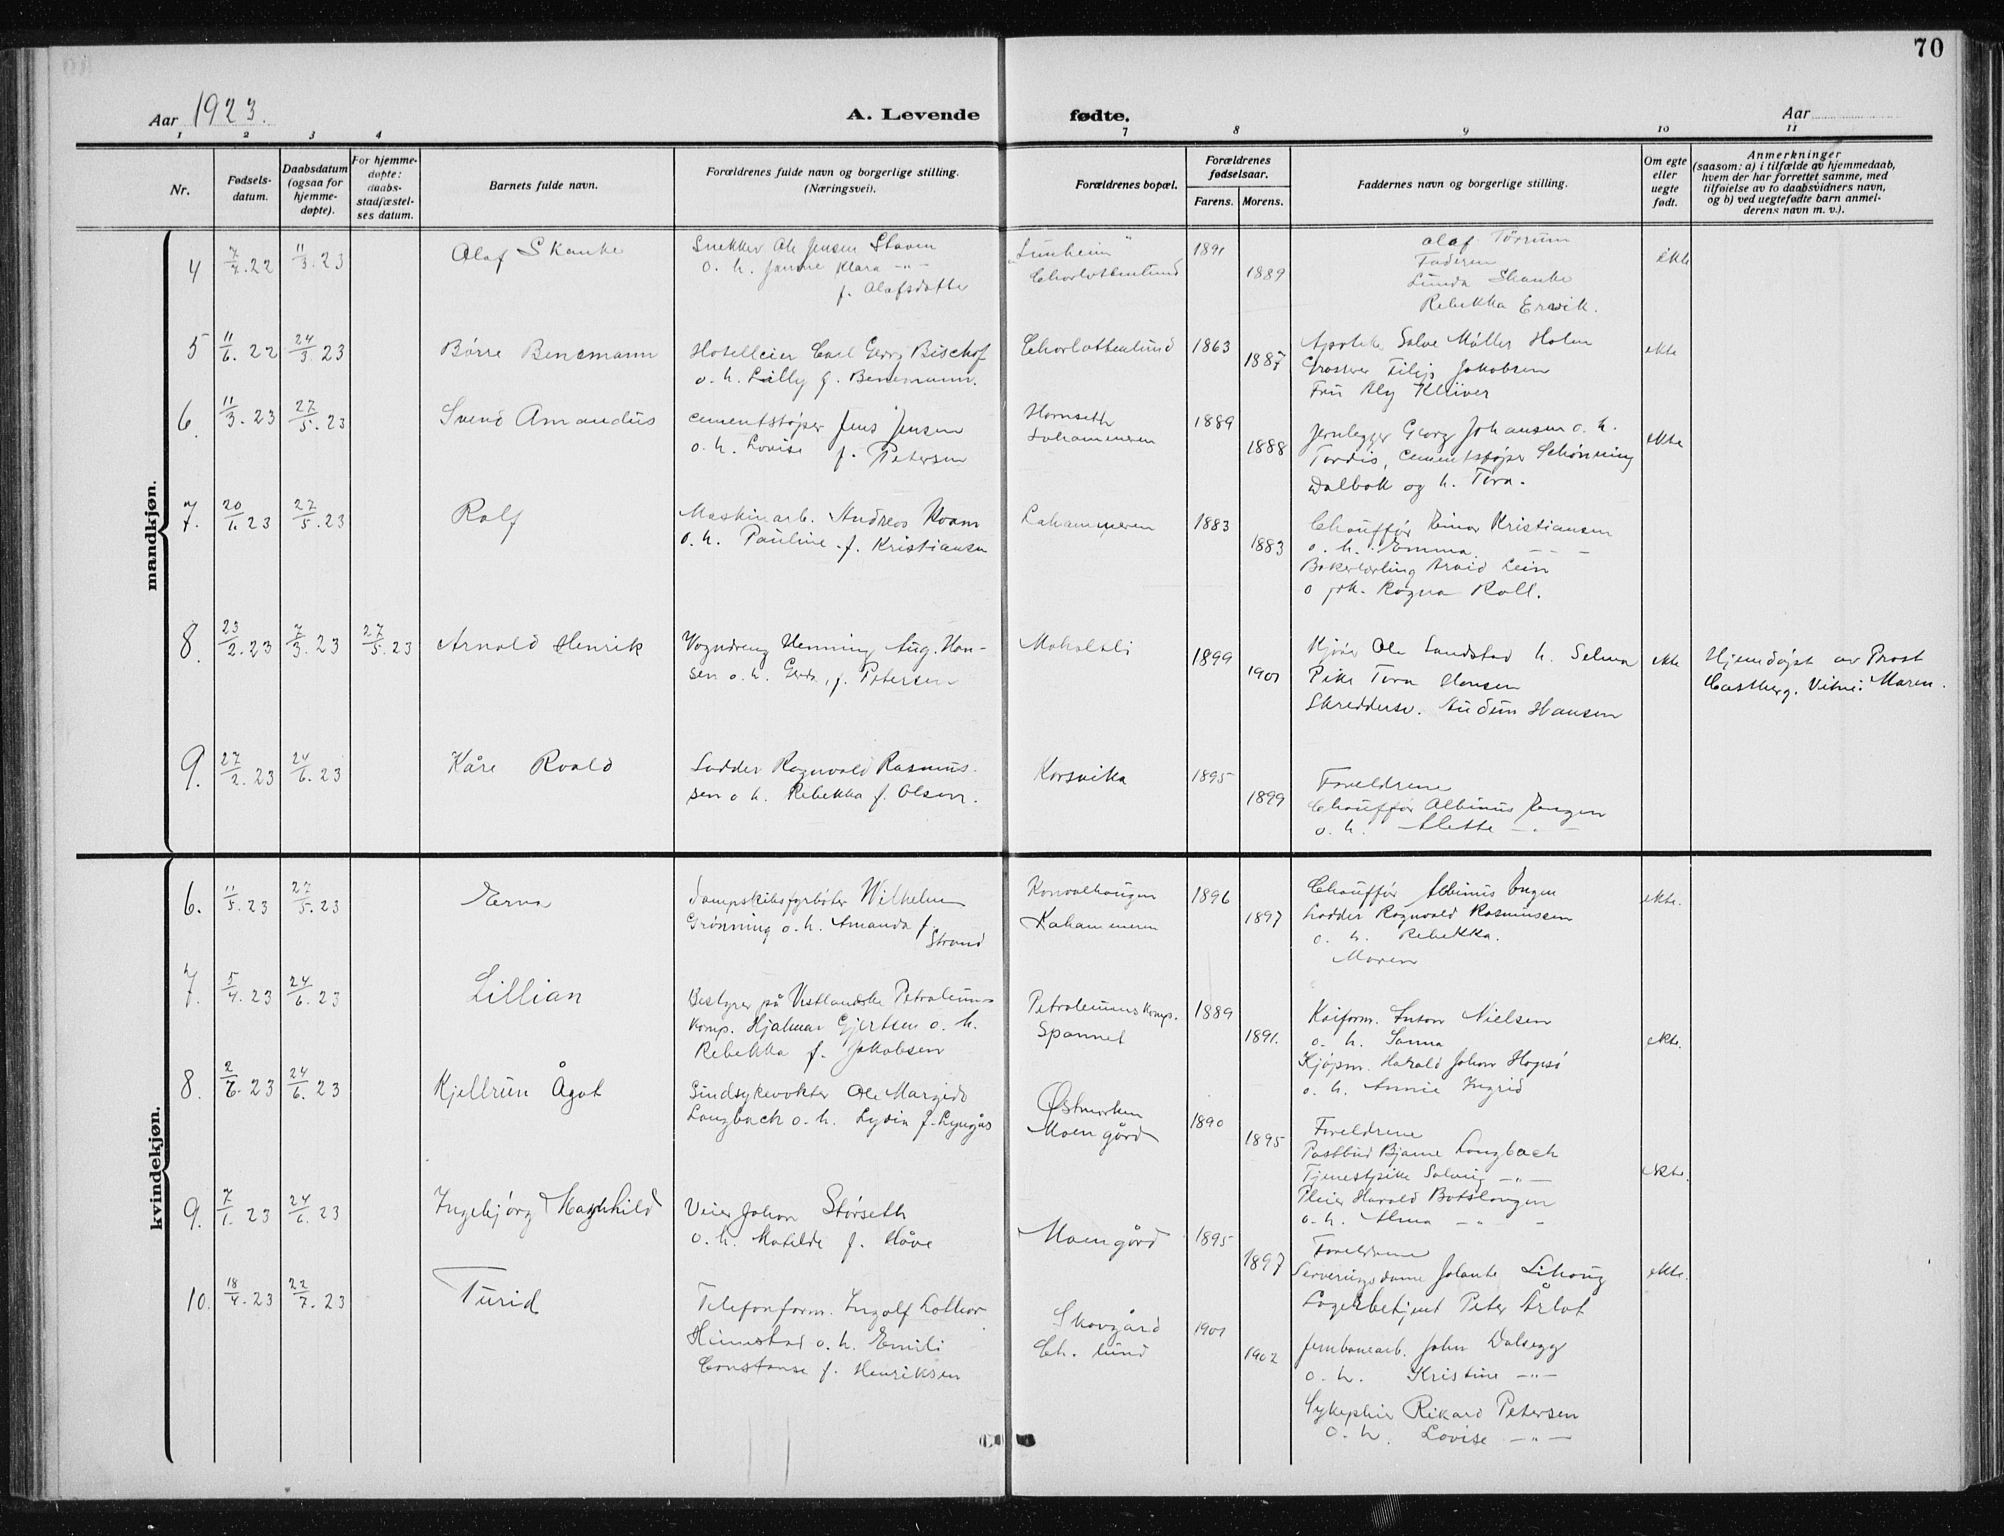 70
Aar 1923.
A. Levende fødte.
Aar
1 2 3 4 7 8 9 10 11
Nr.
Fødsels-
datum.
Daabsdatum
(ogsaa for
hjemme-
døpte).
For hjemme-
døpte:
daabs-
stadfæstel-
ses datum.
Barnets fulde navn.
Forældrenes fulde navn og borgerlige stilling.
(Næringsvei).
Forældrenes bopæl.
Forældrenes
fødselsaar.
Farens. Morens.
Faddernes navn og borgerlige stilling.
Om egte
eller
uegte
født.
Anmerkninger
(saasom: a) i tilfælde av hjemmedaab,
hvem der har forrettet samme, med
tilføielse av to daabsvidners navn,
og b) ved uegtefødte barn anmel-
derens navn m. v.).
mandkjøn.
4 7/4.22 11/3.23 Olaf Skanke
Snekker Ole Jensen
o. h. Janne Klara -"-
f. Olafsdatter
Charlottenlund
1891
1889
Olaf
Faderen
Skanke
Rebekka Ervik.
ekte
5 11/6.22 24/3.23 Børre Benemann
Hotelleier Carl Georg Bischof
o. h. Lilly f. Benemann.
Charlottenlund
1863
1887
Salve Møller Holen
Grosserer Filip Jakobsen
Fru Aly Klüver
ekte
6. 11/3.23 27/5.23 Svend Amandus
Cementstøper Jens Jensen
o. h. Lovise f. Petersen
Hornseth
Lahammeren
1889
1888
Jernlegger Georg Johansen o. h.
Tordis, Cementstøper Schønning
Dalbak og h. Tora.
ekte
7. 20/1.23 27/5.23 Rolf
Maskinarb. Andreas Kvam
o. h. Pauline f. Kristiansen
Lahammeren
1883
1883
Chauffør Einar Kristiansen
o. h. Emma - - -
Bakerlærling Arvid Lein
o frk. Ragna Roll.
8. 23/2.23 7/3.23 27/5.23 Arnold Henrik
Vogndreng Henning Aug. Han-
sen o. h. Gerda, f. Petersen
Moholtli
1899
1901
Kjør Ole Sandstad h. Selma
Pike Tora Hansen
Skreddersv. Audun Hansen
ekte
Hjemdøpt av Prost
Castberg. Vitne: Maren.
9. 27/2.23 24/6.23 Kåre Roald
Ladder Ragnvald Rasmus-
sen o h. Rebekka f. Olsen.
Korsvika
1895
1899
Foreldrene
Chauffør Albinus Engen
o. h. Alette -"-
kvindekjøn.
6. 11/5.23 27/5.23 Erna
Dampskibsfyrbøter Wilhelm
Grønning o. h. Amanda f.
Strand
Konvalhaugen
Lahammeren
1896
1897
Chauffør Albinus Engen
Ladder Ragnvald Rasmussen
o. h. Rebekka.
Moren
ekte.
7. 5/4.23 24/6.23 Lillian
Bestyrer på Vestlandske Petroleums-
komp. Hjalmar Gjertsen o. h.
Rebekka f. Jakobsen
Petroleumskomp.
1889
1891.
Kaiform. Anton Nielsen
o. h. Sanna
Kjøpm. Harald Johan Hopsø
o. h. Annie Ingrid
ekte.
8. 2/6.23 24/6.23 Kjellrun Ågot
Sindsykevokter Ole Margido
Langbach o. h. Lydia f. Lyngås
Østmarken
Moen gård
1890
1895
Foreldrene
Postbud Bjarne Langbach
Tjenestpike Solveig -"-
Pleier Harald Botslangen
o. h. Alma - " -
ekte.
9. 7/1.23 24/6.23 Ingebjørg Magnhild
Veier Johan Størseth
o. h. Matilde f. Håve
Moen gård
1895
1897
Foreldrene
Serveringsdame Jolante
Lagerbetjent Peter
ekte.
10. 18/4.23 22/7.23 Turid
Telefonform. Ingolf Lothar
Heimstad o. h. Emili
Constanse f. Henriksen
Skovgård
Ch. lund
1901
1902
Jernbanearb. John Dalsegg
o. h. Kristine -"-
Sykepleier Rikard Petersen
o. h. Lovise -"-